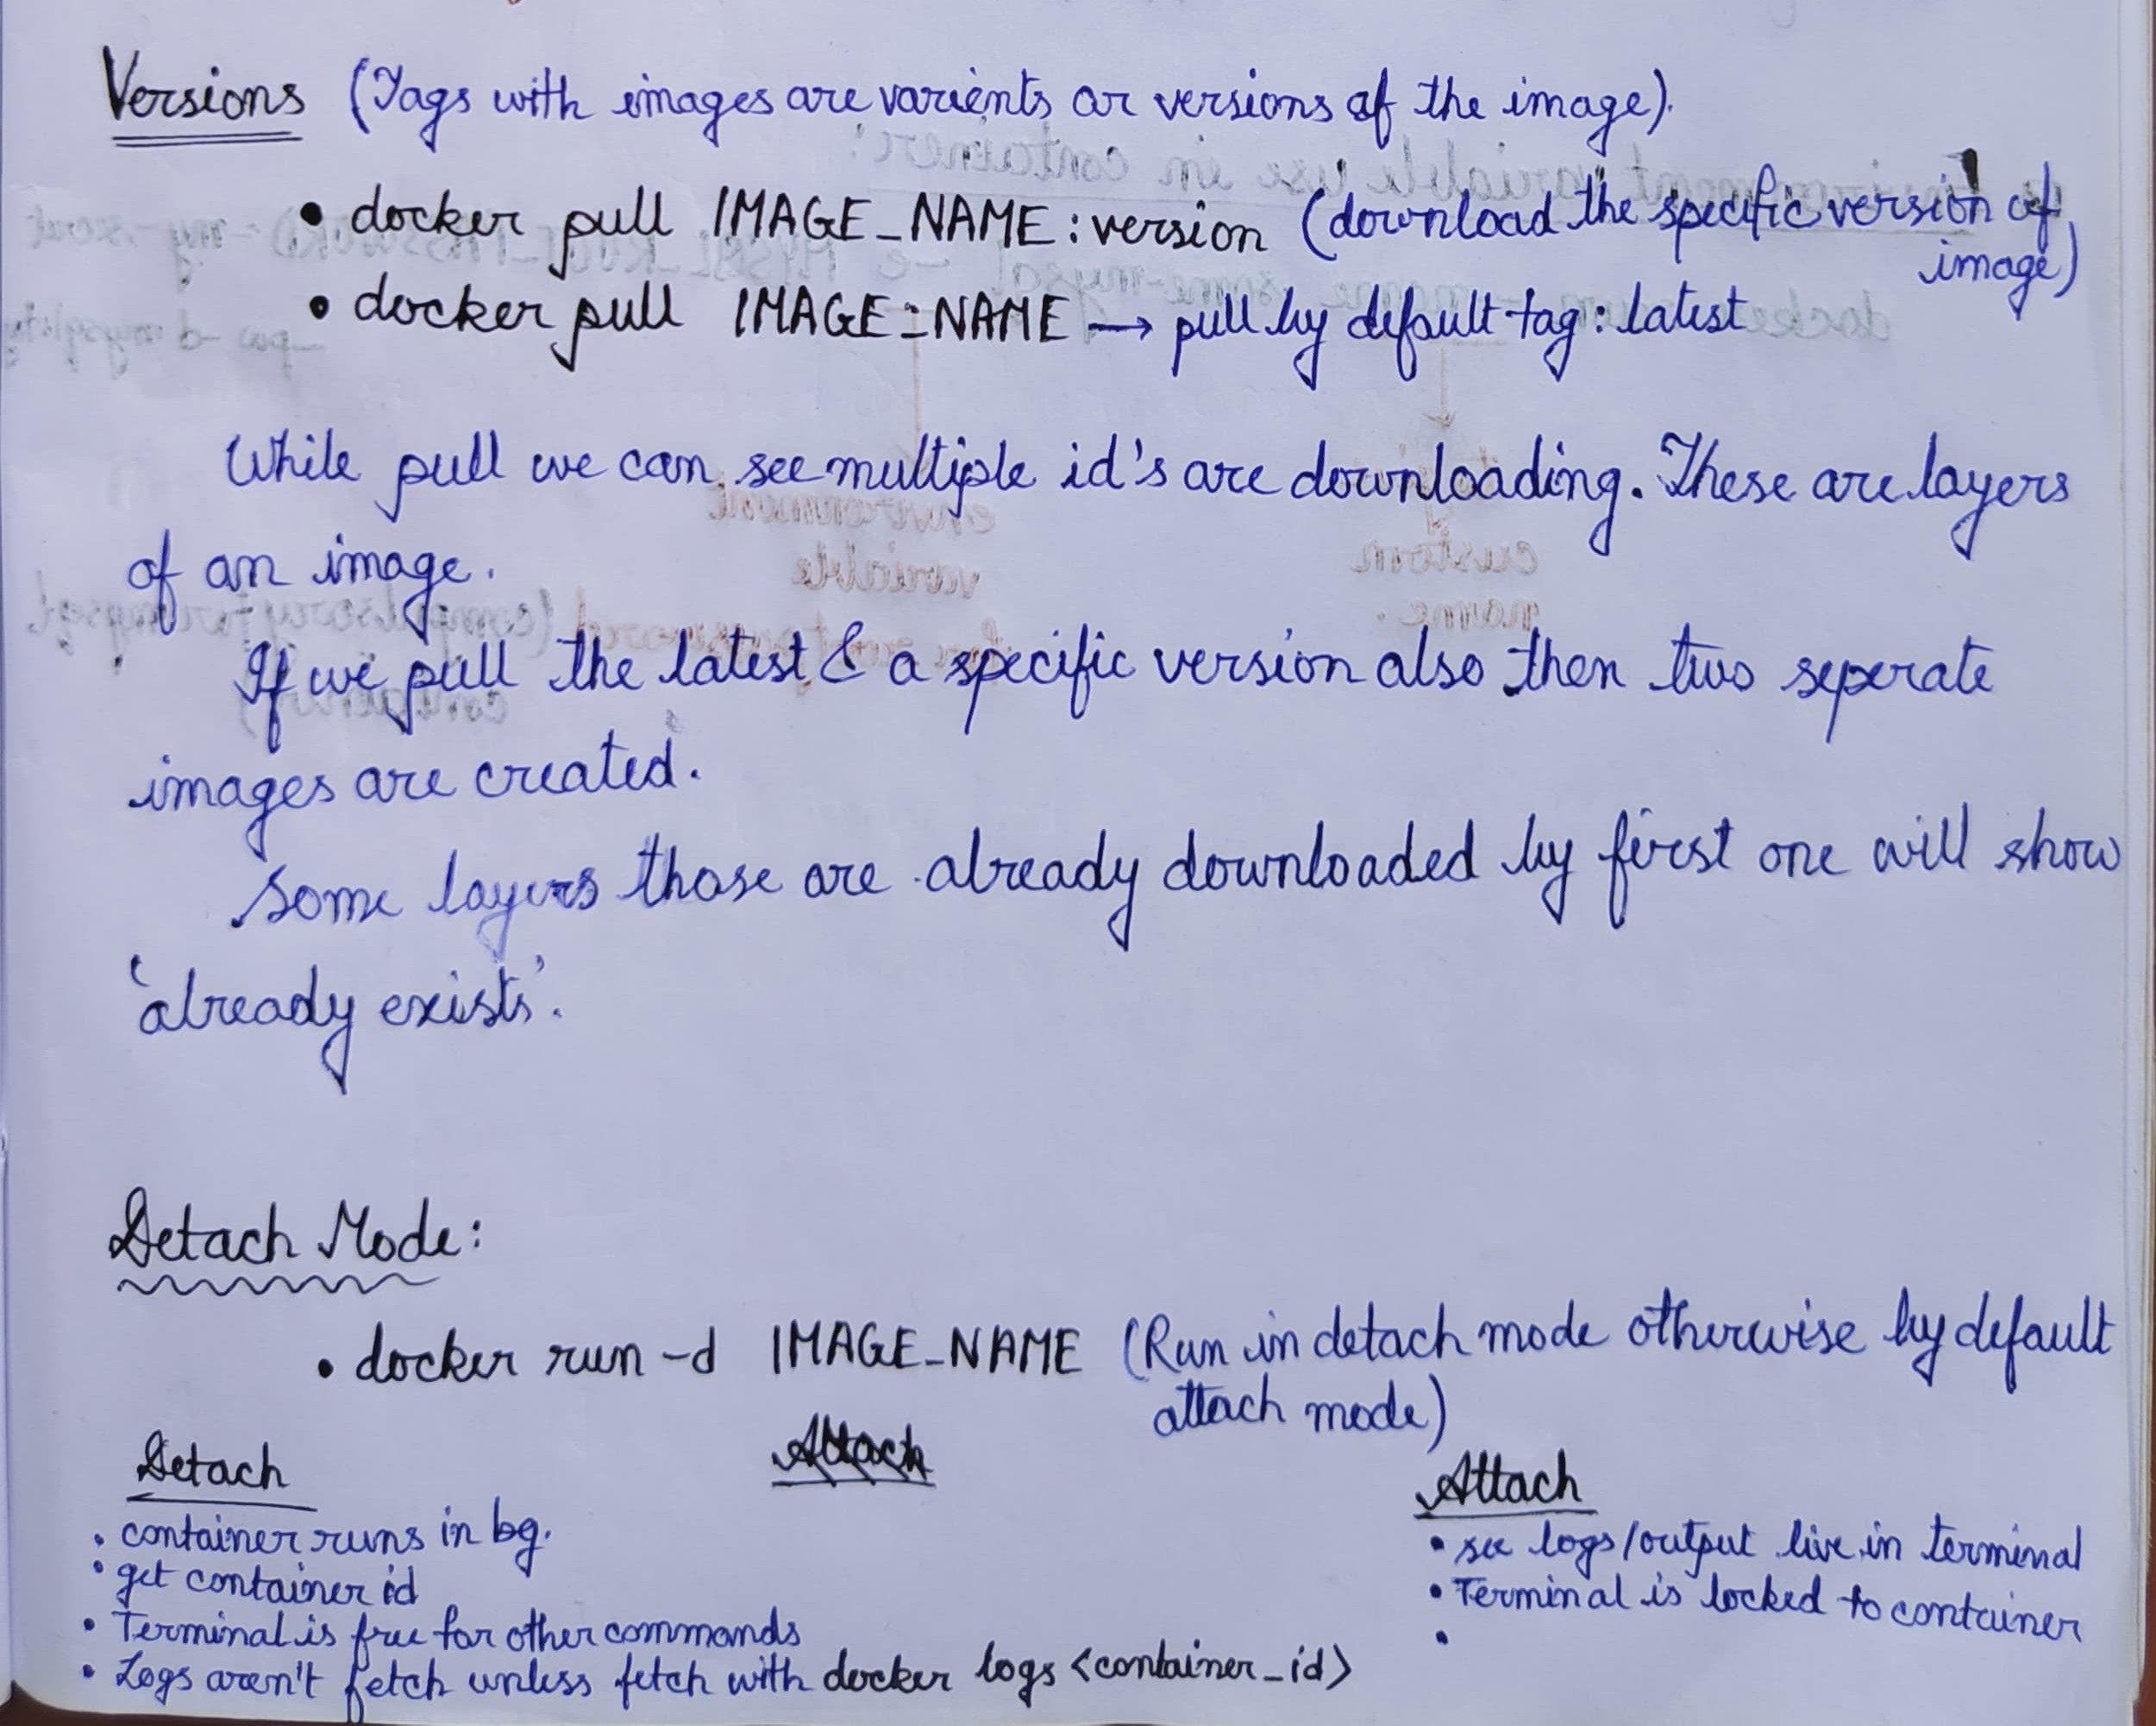 Versions (Tags with images are varients or versions of the image).
• docker pull IMAGE_NAME : version (download the specific version of
image)
• docker pull IMAGE_NAME → pull by default tag : latest
While pull we can see multiple id's are downloading. These are layers
of an image.
If we pull the latest & a specific version also then two seperate
images are created.
Some layers those are already downloaded by first one will show
'already exists'.
Detach Mode:
• docker run -d IMAGE_NAME (Run in detach mode otherwise by default
attach mode)
Detach
Attach
• container runs in bg.
• get container id
• Terminal is free for other commands
• Logs aren't fetch unless fetch with docker logs <container_id>
Attach
• see logs/output live in terminal
• Terminal is locked to container
•